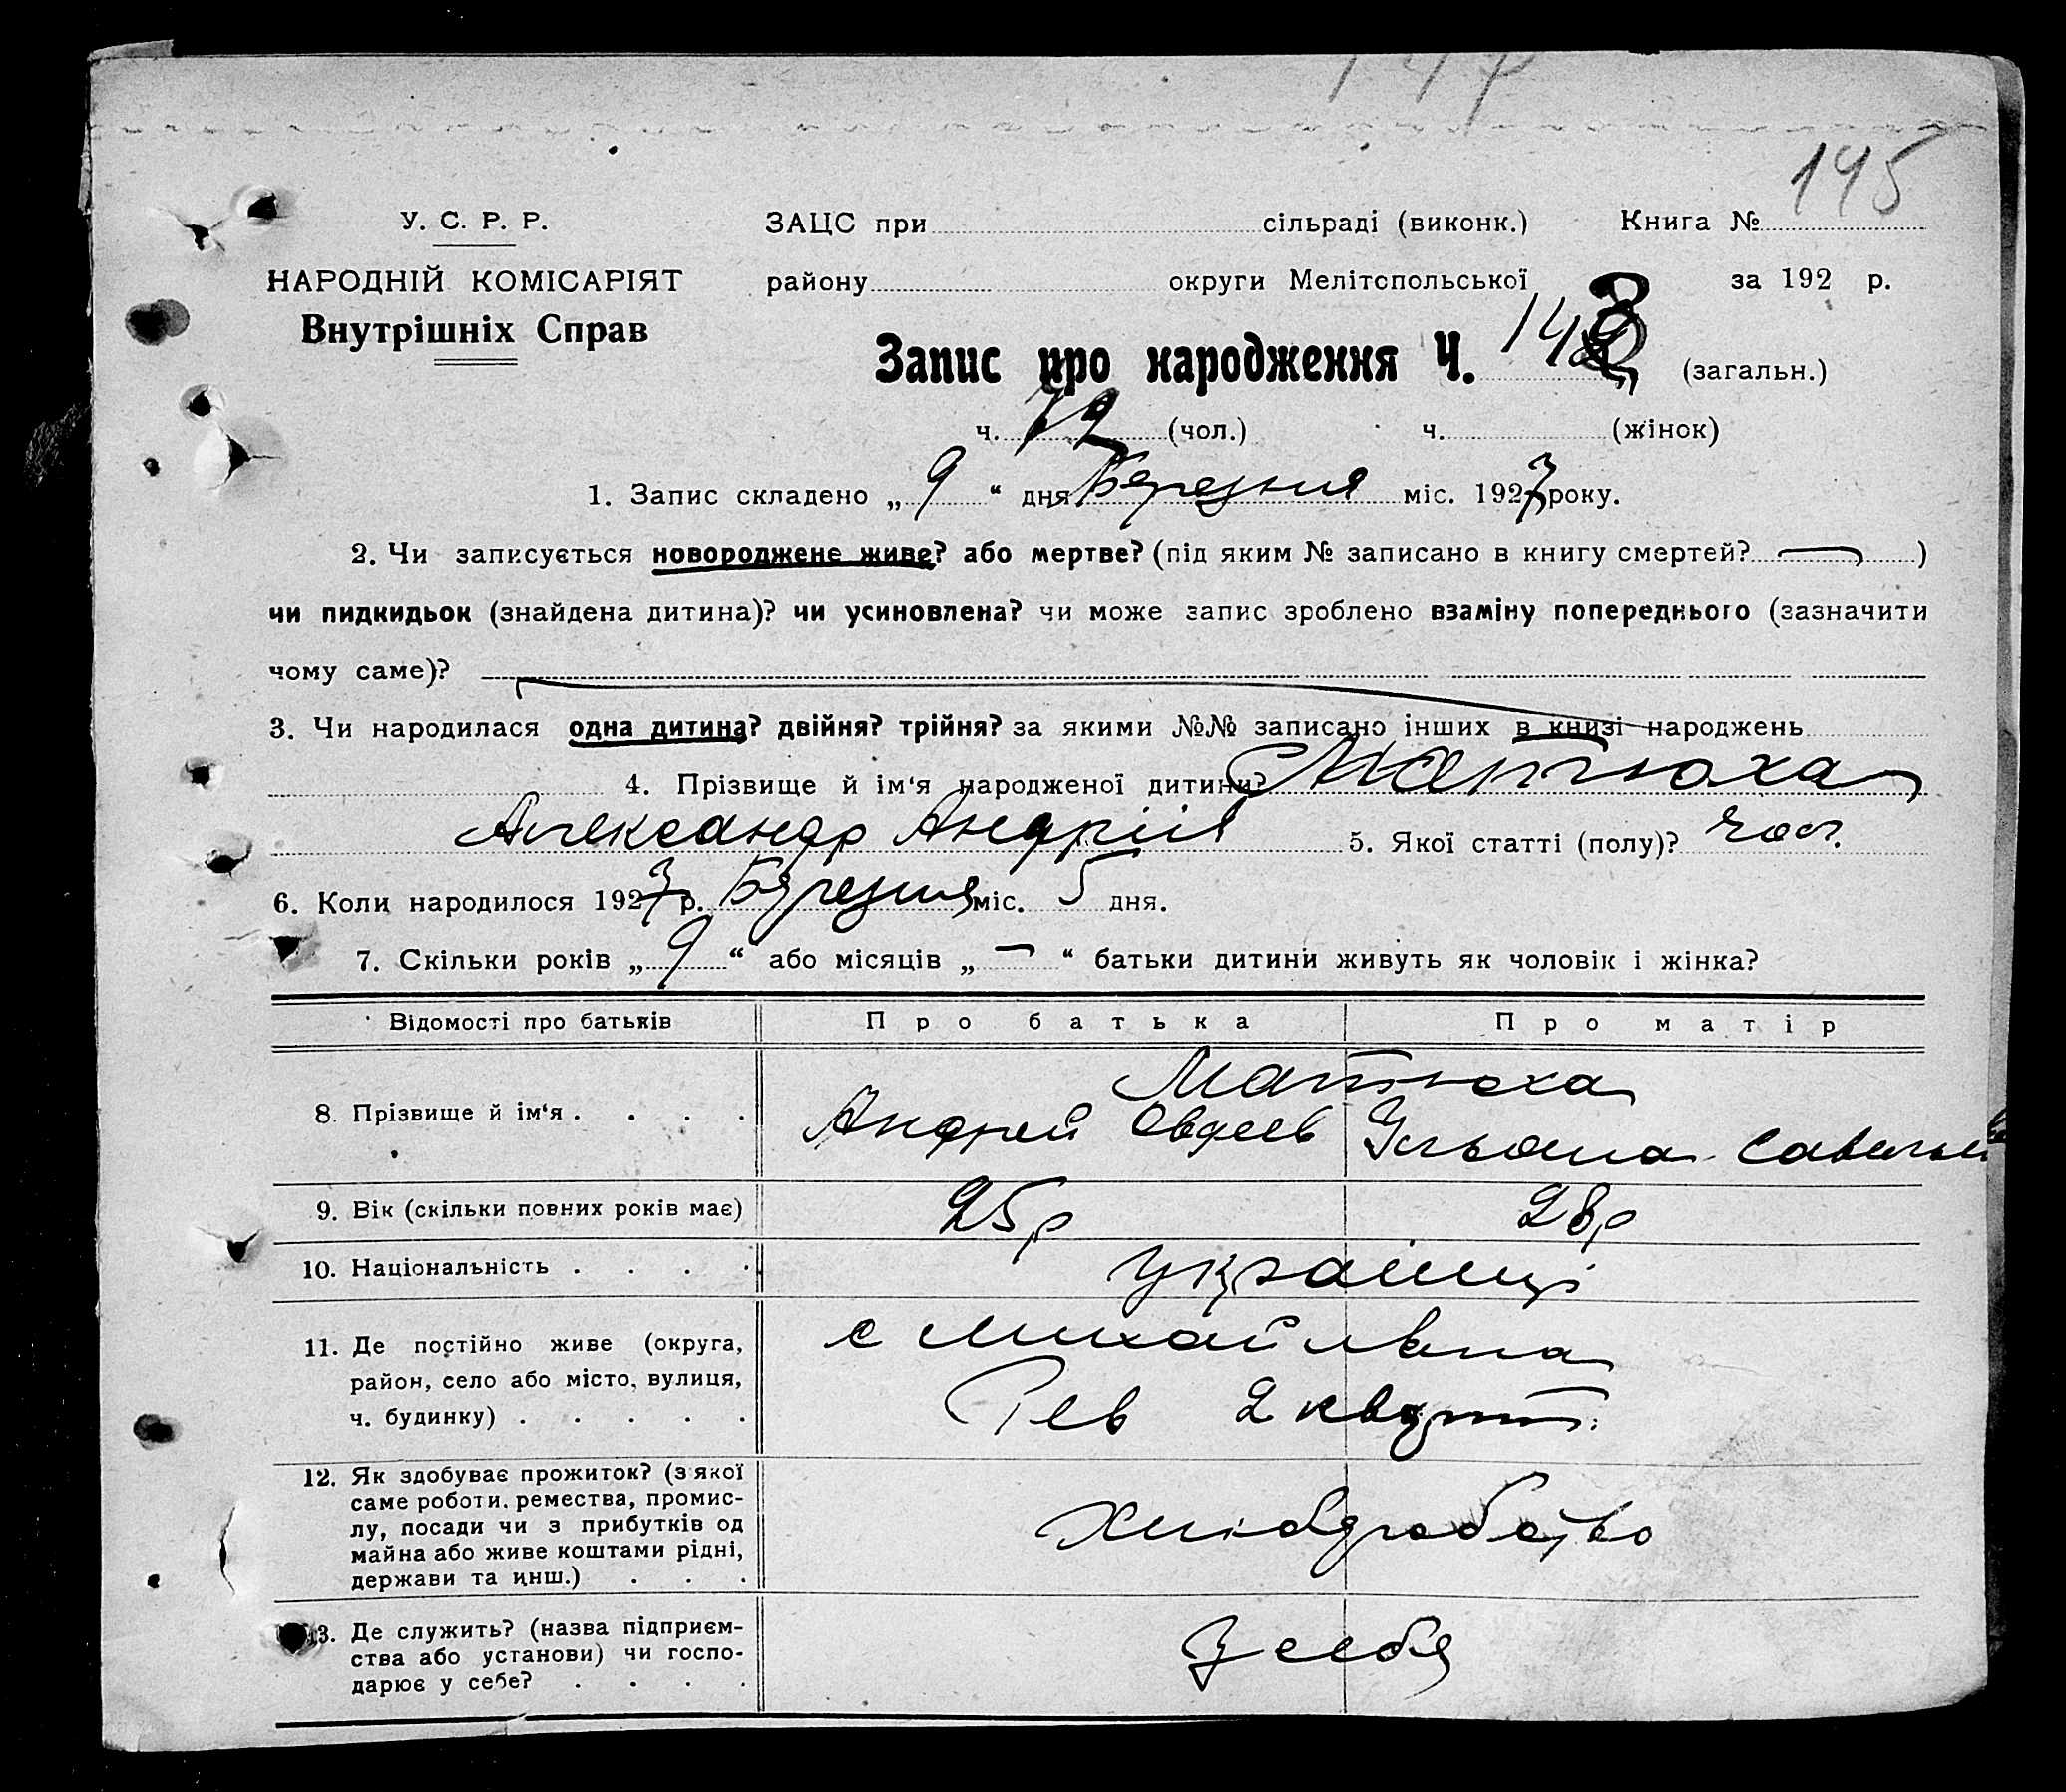 145
У. С. Р. Р.
ЗАЦС при сільраді (виконк.) Книга №
НАРОДНІЙ КОМІСАРІЯТ
району округи Мелітопольської за 192 р.
Внутрішніх Справ
Запис про народження Ч. 148 (загальн.)
ч. 72 (чол.) ч. (жінок)
1. Запис складено „ 9 “ дня Березня міс. 1927 року.
2. Чи записується новороджене живе? або мертве? (під яким № записано в книгу смертей? — )
чи пидкидьок (знайдена дитина)? чи усиновлена? чи може запис зроблено взаміну попереднього (зазначити
чому саме)?
3. Чи народилася одна дитина? двійня? трійня? за якими №№ записано інших в книзі народжень
4. Прізвище й ім‘я народженої дитини? Матюха
Александр Андрій 5. Якої статті (полу)? чол.
6. Коли народилося 1927 р. Березня міс. 5 дня.
7. Скільки років „ 9 “ або місяців „ — “ батьки дитини живуть як чоловік і жінка?
Відомості про батьків Про батька Про матір
Матюха
8. Прізвище й ім‘я . . . . Андрей Овдеев Ульяна
9. Вік (скільки повних років має) 25р 28р
10. Національність . . . . українці
11. Де постійно живе (округа, с Михайлівка
район, село або місто, вулиця,
ч. будинку) . . . . . Рев 2 кварт.
12. Як здобуває прожиток? (з якої
саме роботи, ремества, промис-
лу, посади чи з прибутків од Хліборобство
майна або живе коштами рідні,
держави та инш.) . . .
13. Де служить? (назва підприєм-
ства або установи) чи госпо- У себя
дарює у себе? . . . .